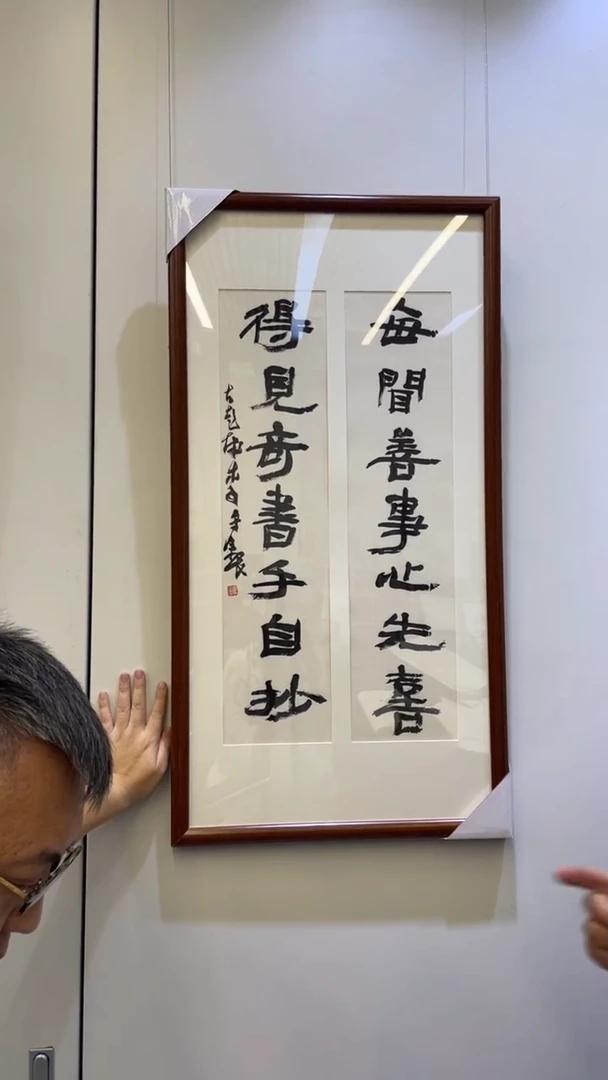 每聞善事心先喜
得見奇書手自抄